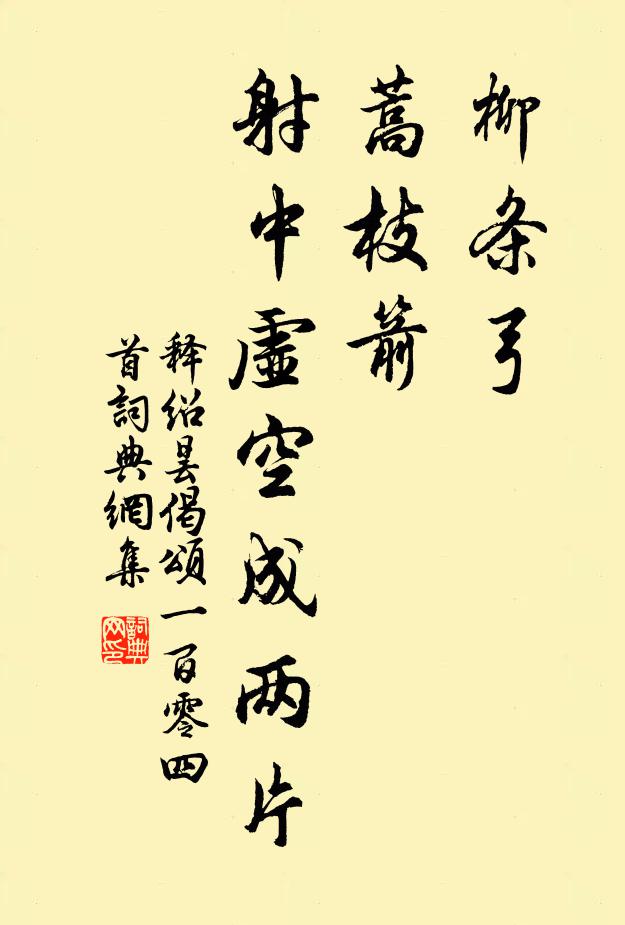 柳条弓
蒿枝箭
射中虚空成两片
释绍昙偈颂一百零四
首詞典網集
詞典
网印